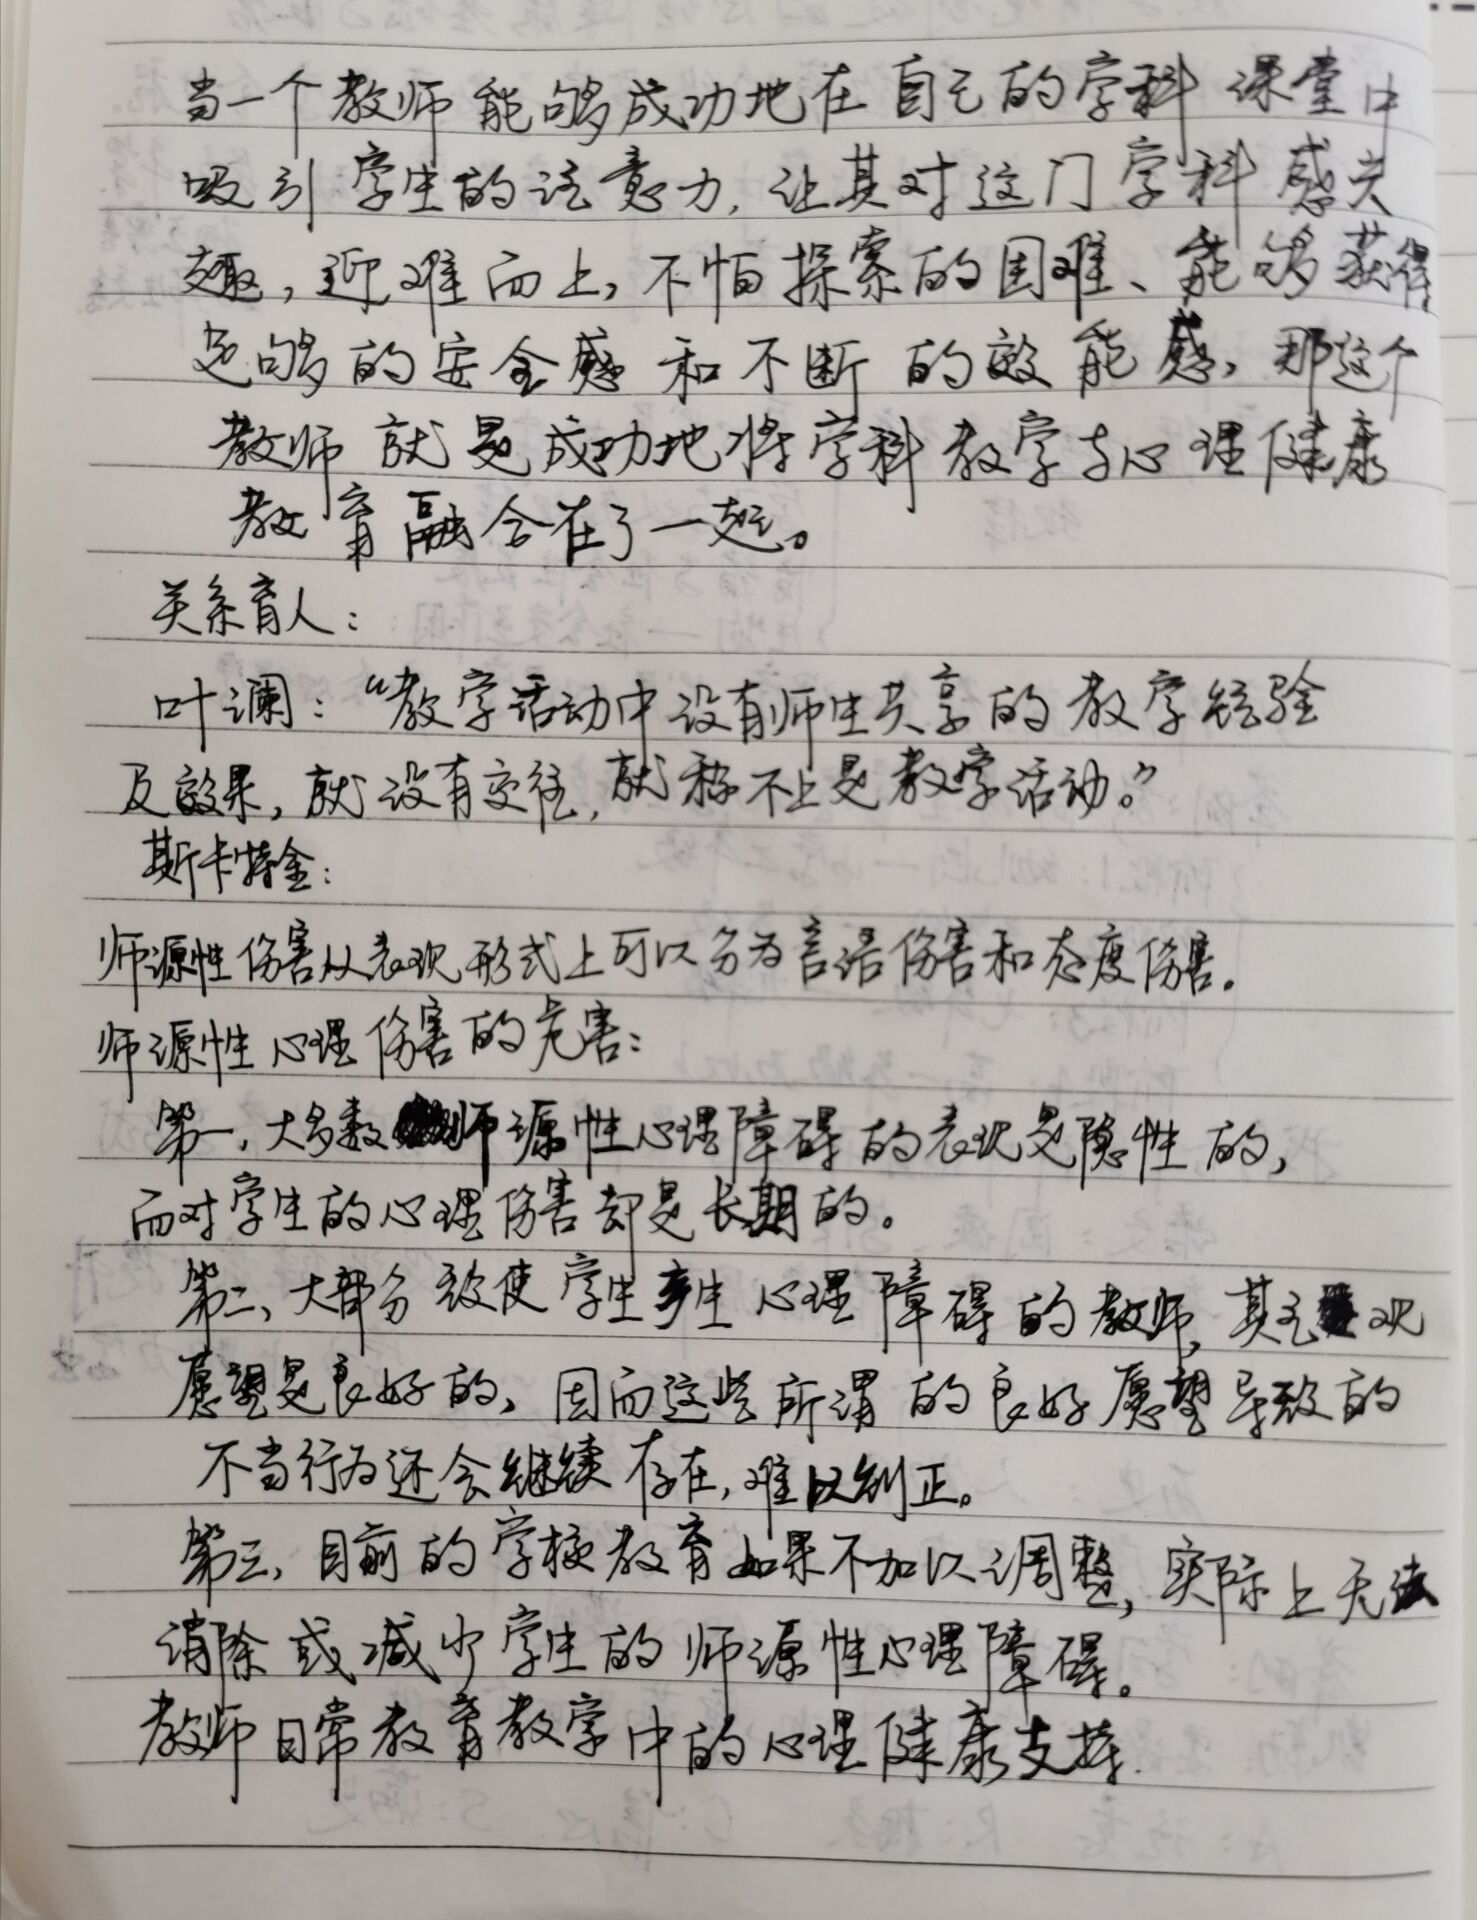 当一个教师能够成功地在自己的学科课堂中
吸引学生的注意力，让其对这门学科感兴
趣，迎难而上，不怕探索的困难、能够获得
足够的安全感和不断的效能感，那这个
教师就是成功地将学科教学与心理健康
教育融合在了一起。
关系育人：
叶澜：“教学活动中没有师生共享的教学经验
及效果，就没有交往，就称不上是教学活动。”
斯卡特金：
师源性伤害从表现形式上可以分为言语伤害和态度伤害。
师源性心理伤害的危害：
第一，大多数师源性心理障碍的表现是隐性的，
而对学生的心理伤害却是长期的。
第二、大部分致使学生产生心理障碍的教师，其主观
愿望是良好的，因而这些所谓的良好愿望导致的
不当行为还会继续存在，难以纠正。
第三，目前的学校教育如果不加以调整，实际上无法
消除或减少学生的师源性心理障碍。
教师日常教育教学中的心理健康支持.